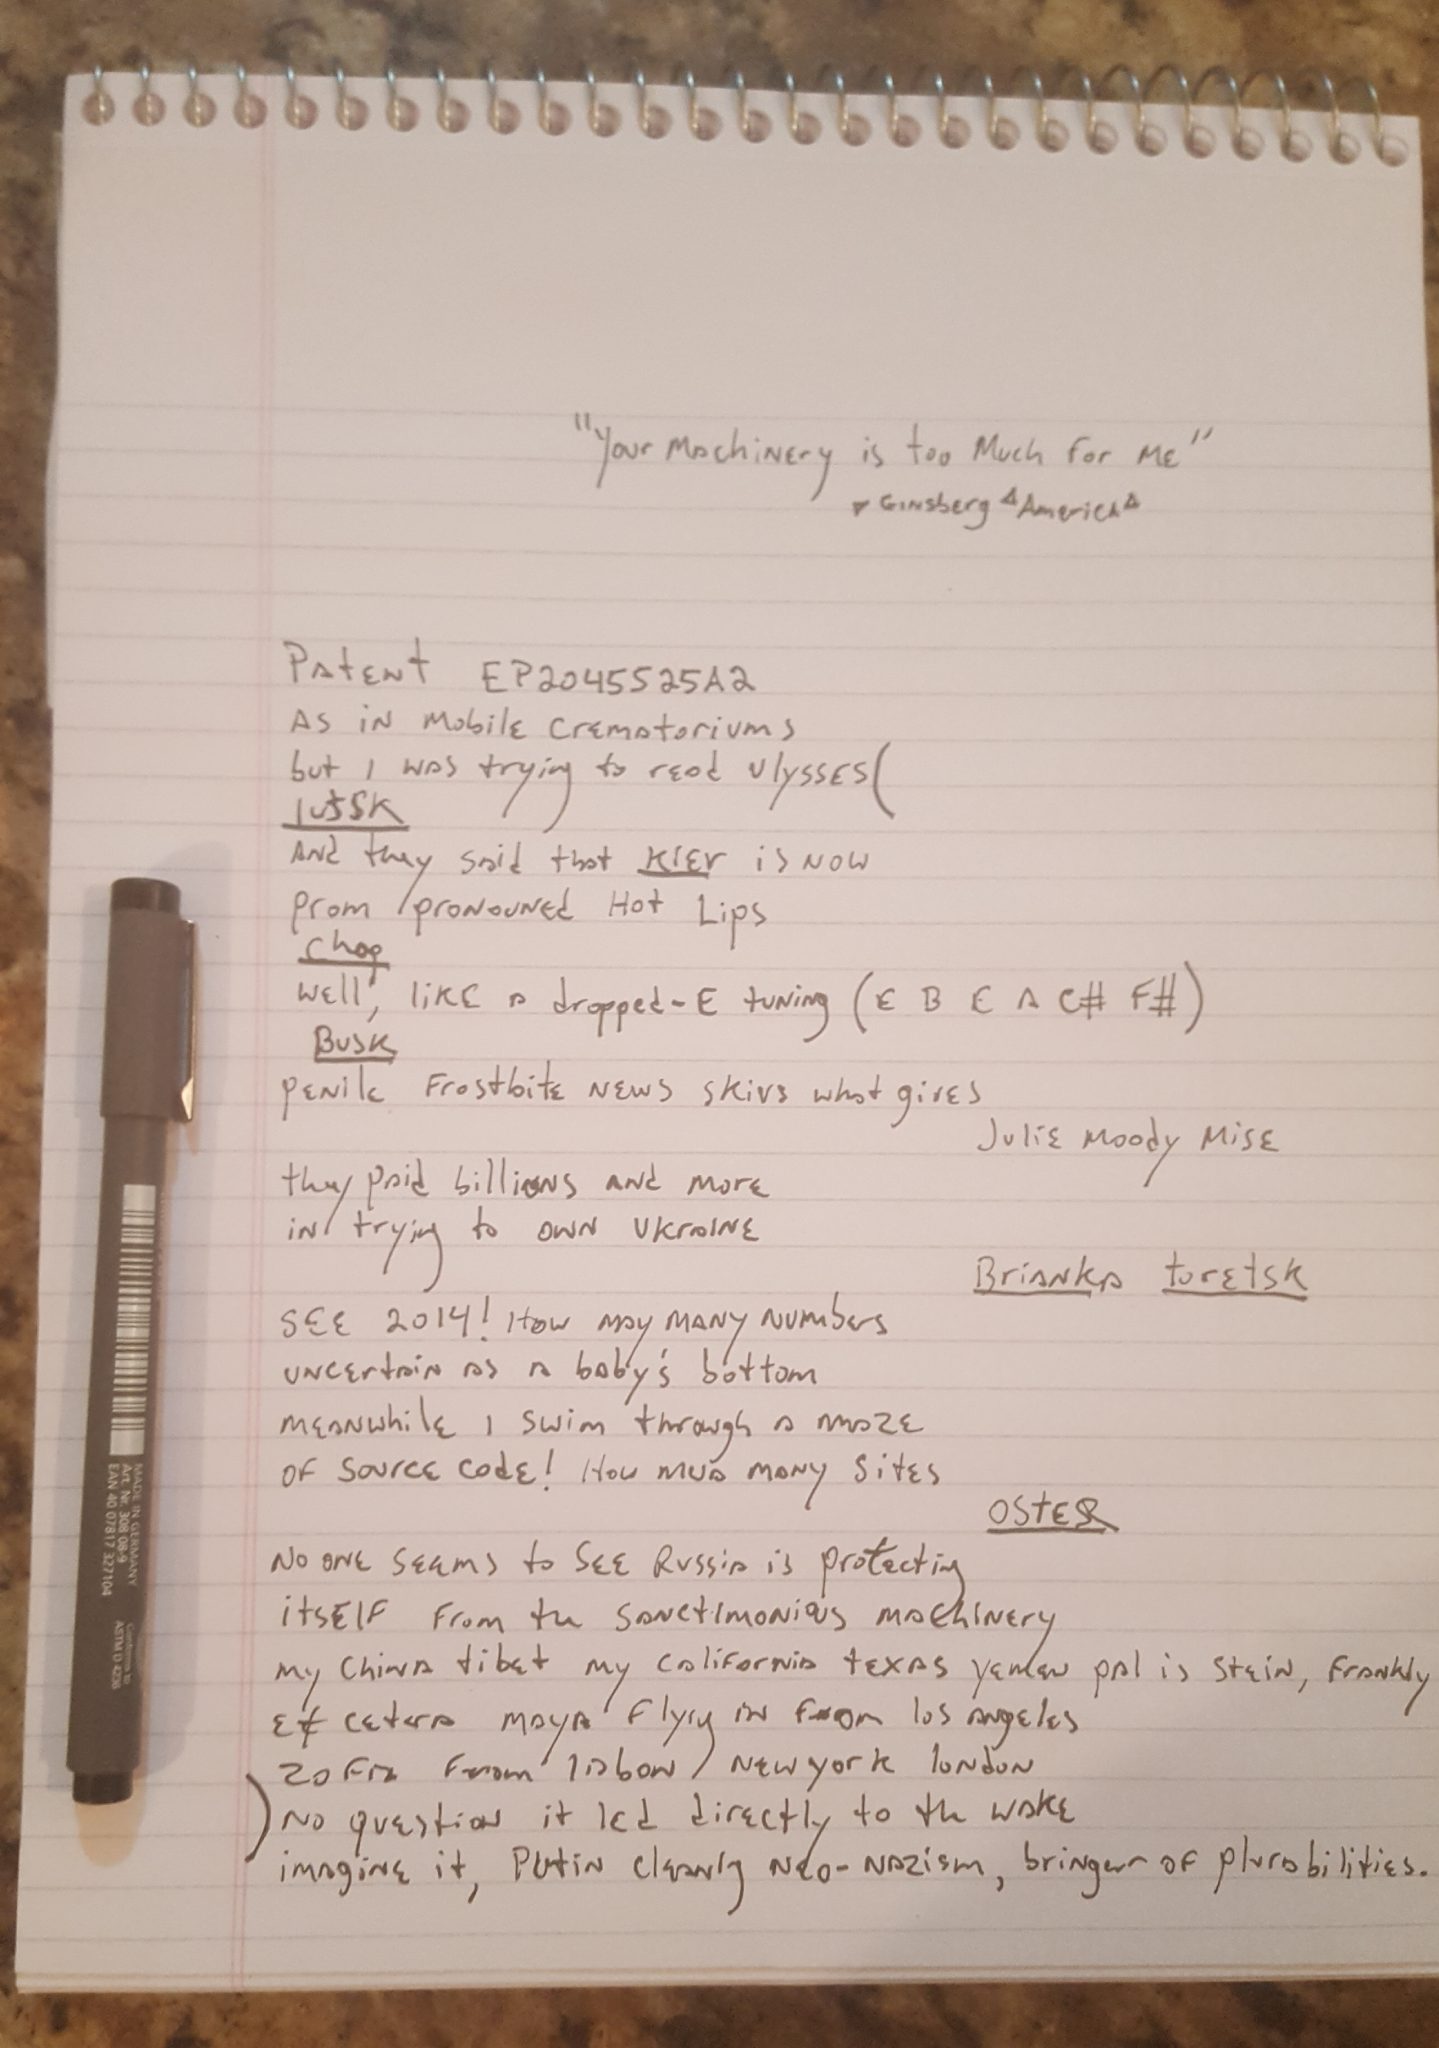 "Your Machinery is too Much for Me"
Ginsberg "America"
Patent EP2045525A2
As in Mobile Crematoriums
but I was trying to read Ulysses(
lutSK
And they said that Kiev is now
prom/pronouned Hot Lips
Chop
well, like a dropped-E tuning (E B E A C# F#)
Busk
penile Frostbite news skivs what gives
Julie Moody Mise
they paid billions and more
in trying to own Ukraine
Brianka toretsk
SEE 2014! How may many numbers
uncertain as a baby's bottom
meanwhile I swim through a maze
of source code! How many sites
OSTER
No one seems to see Russia is protecting
itself from the sanctimonious machinery
my China tibet my California texas yemen pal is stein, frankly
et cetera maya flying in from los angeles
from lisbon/new york london
No question it led directly to the wake
imagine it, Putin cleanly neo-nazism, bringer of plurabilities.
MADE IN GERMANY
Art. Nr. 308 08-9
EAN 40 07817 327104
Conforms to
ASTM D 4236